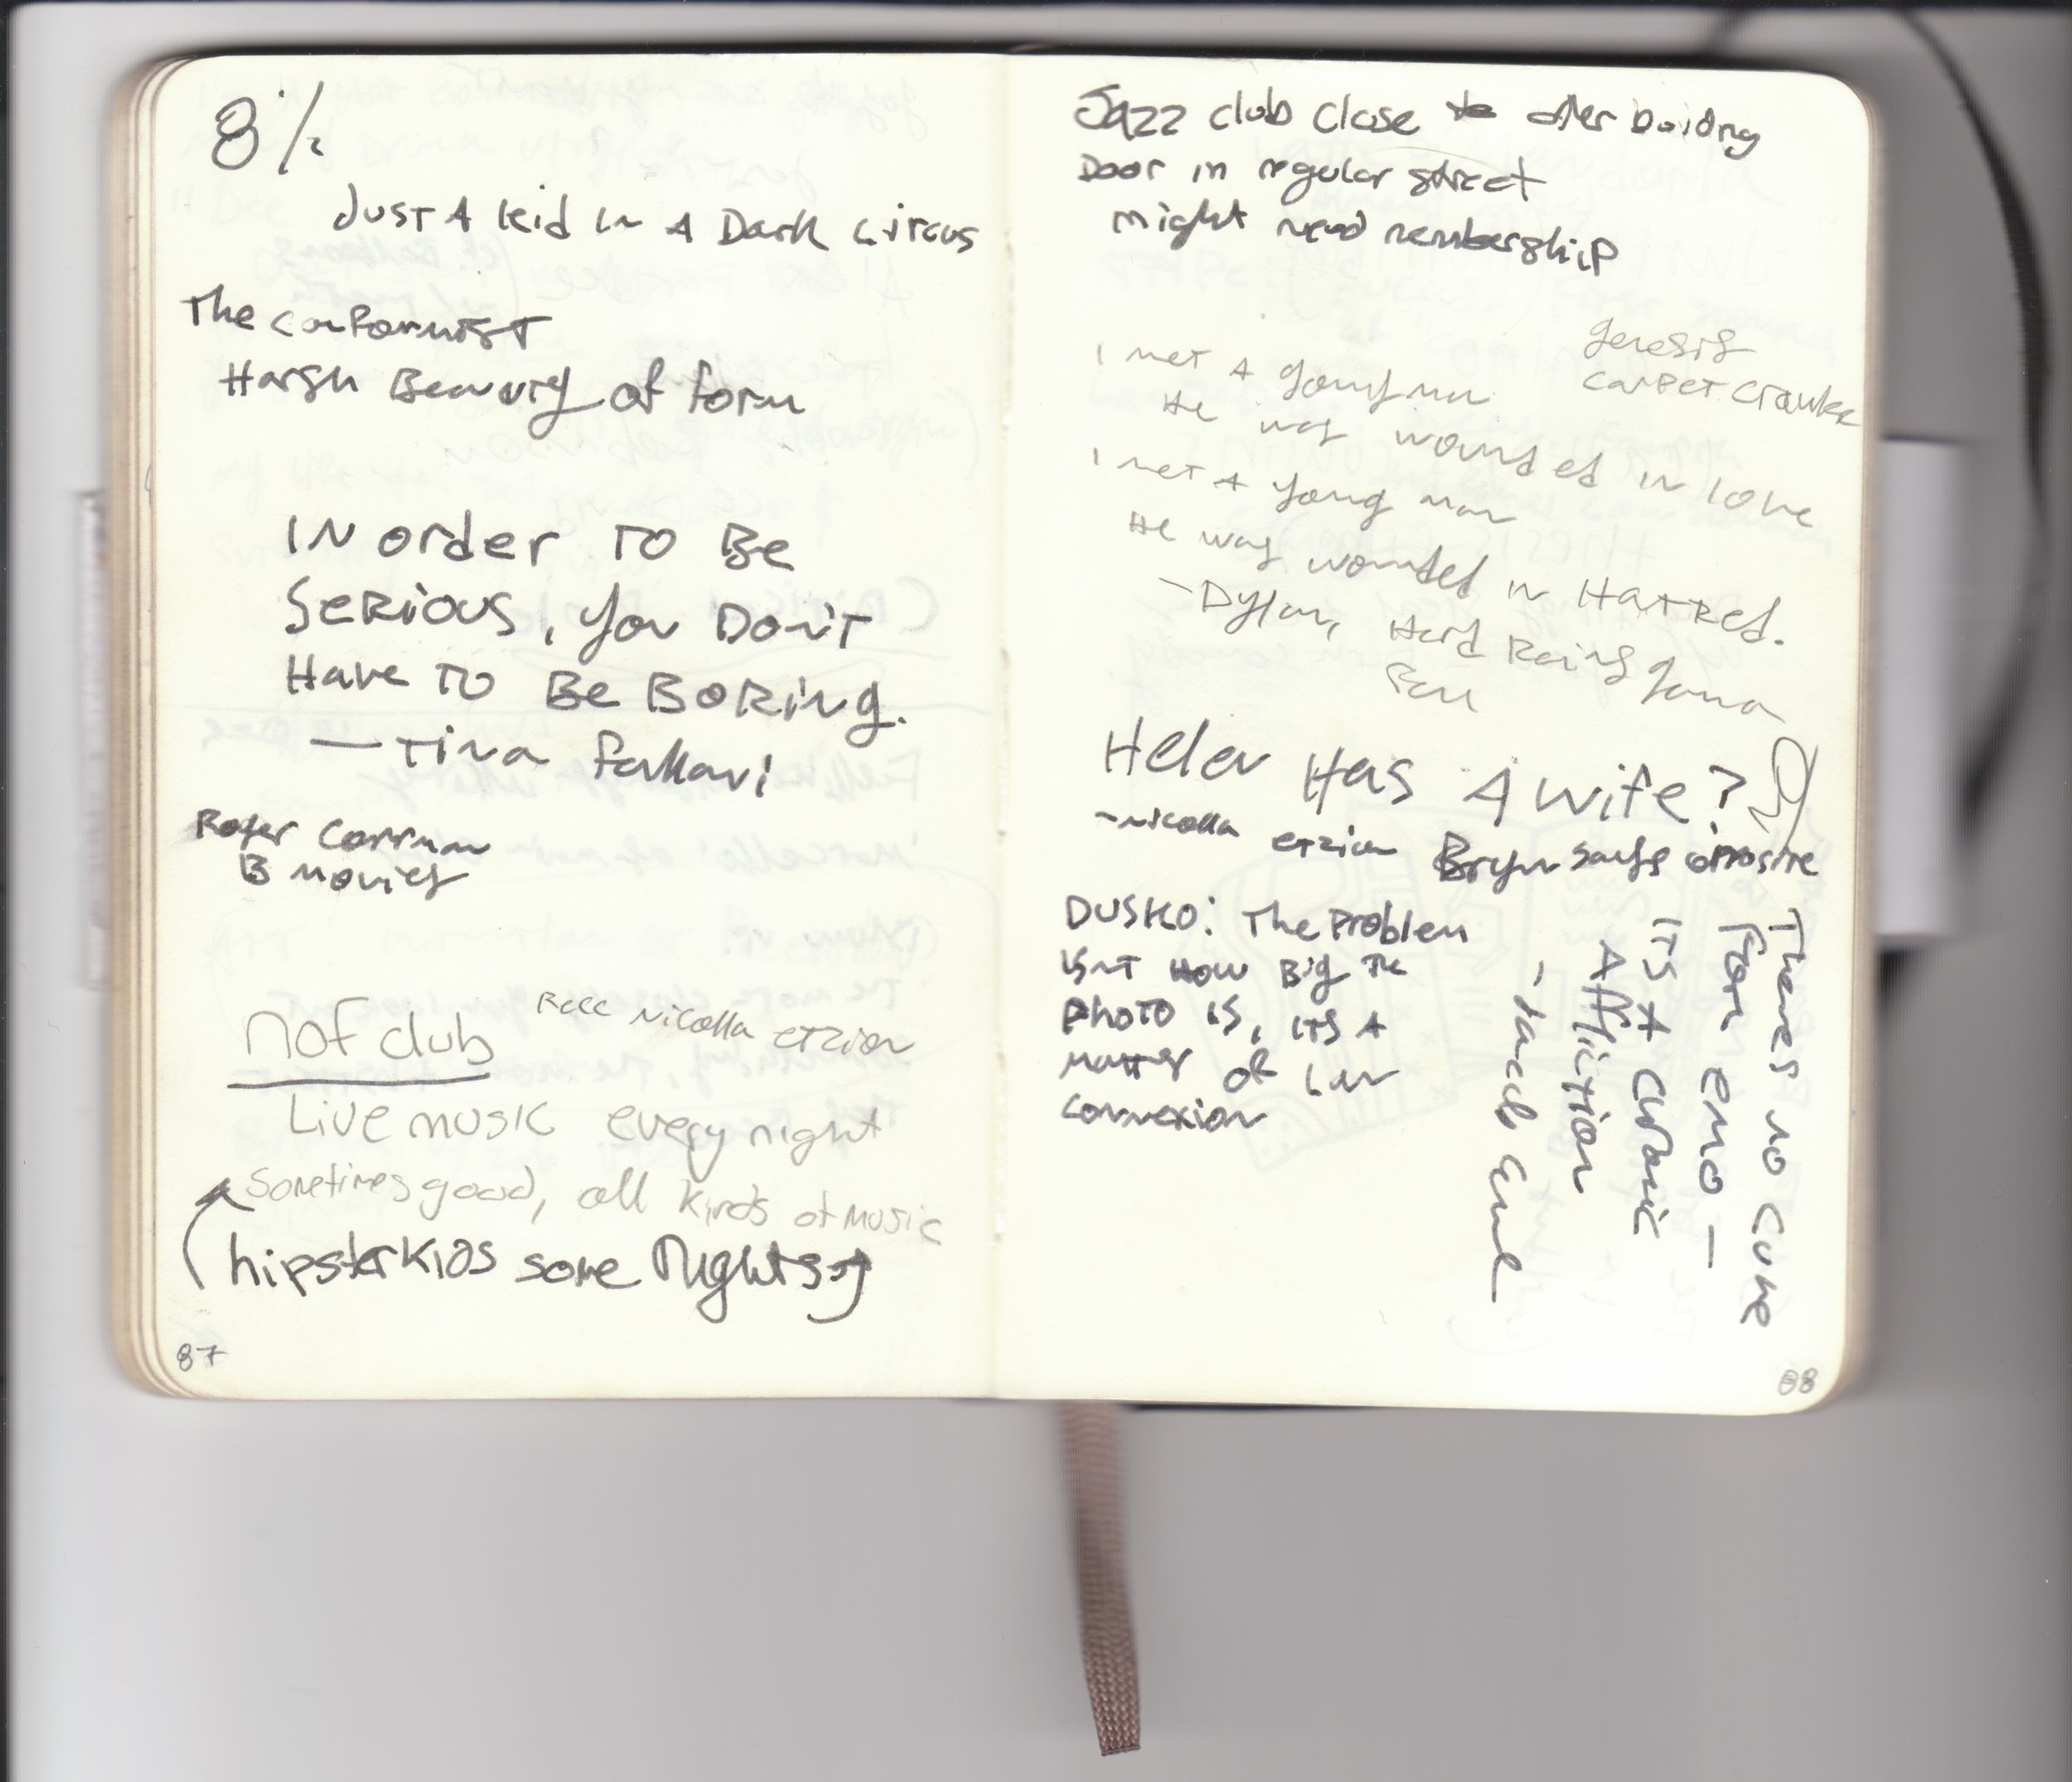 8 1/2
Just A kid in A Dark circus
The conformist
Harsh Beauty of form
IN order TO Be
Serious, you Don't
Have TO Be BORing.
— Tina
Roger Corman
B movies
not club
Recc Nicolla etzion
Live music every night
sometimes good, all kinds of music
hipster kids some nights
87
Jazz club close to after
Door in regular street
might need membership
genesis
carpet
I met A young man
He was wounded in love
I met A young man
He was wounded in Hatred.
- Dylan, Hard Rains gonna
Fall
Helen Has A wife?
- Nicolla etzion Bryn says opposite
DUSKO: The Problem
isnt How Big the
photo is, its A
matter of
connexion
Theres no cure
for emo —
ITS A chronic
Affliction
- Jacob
88